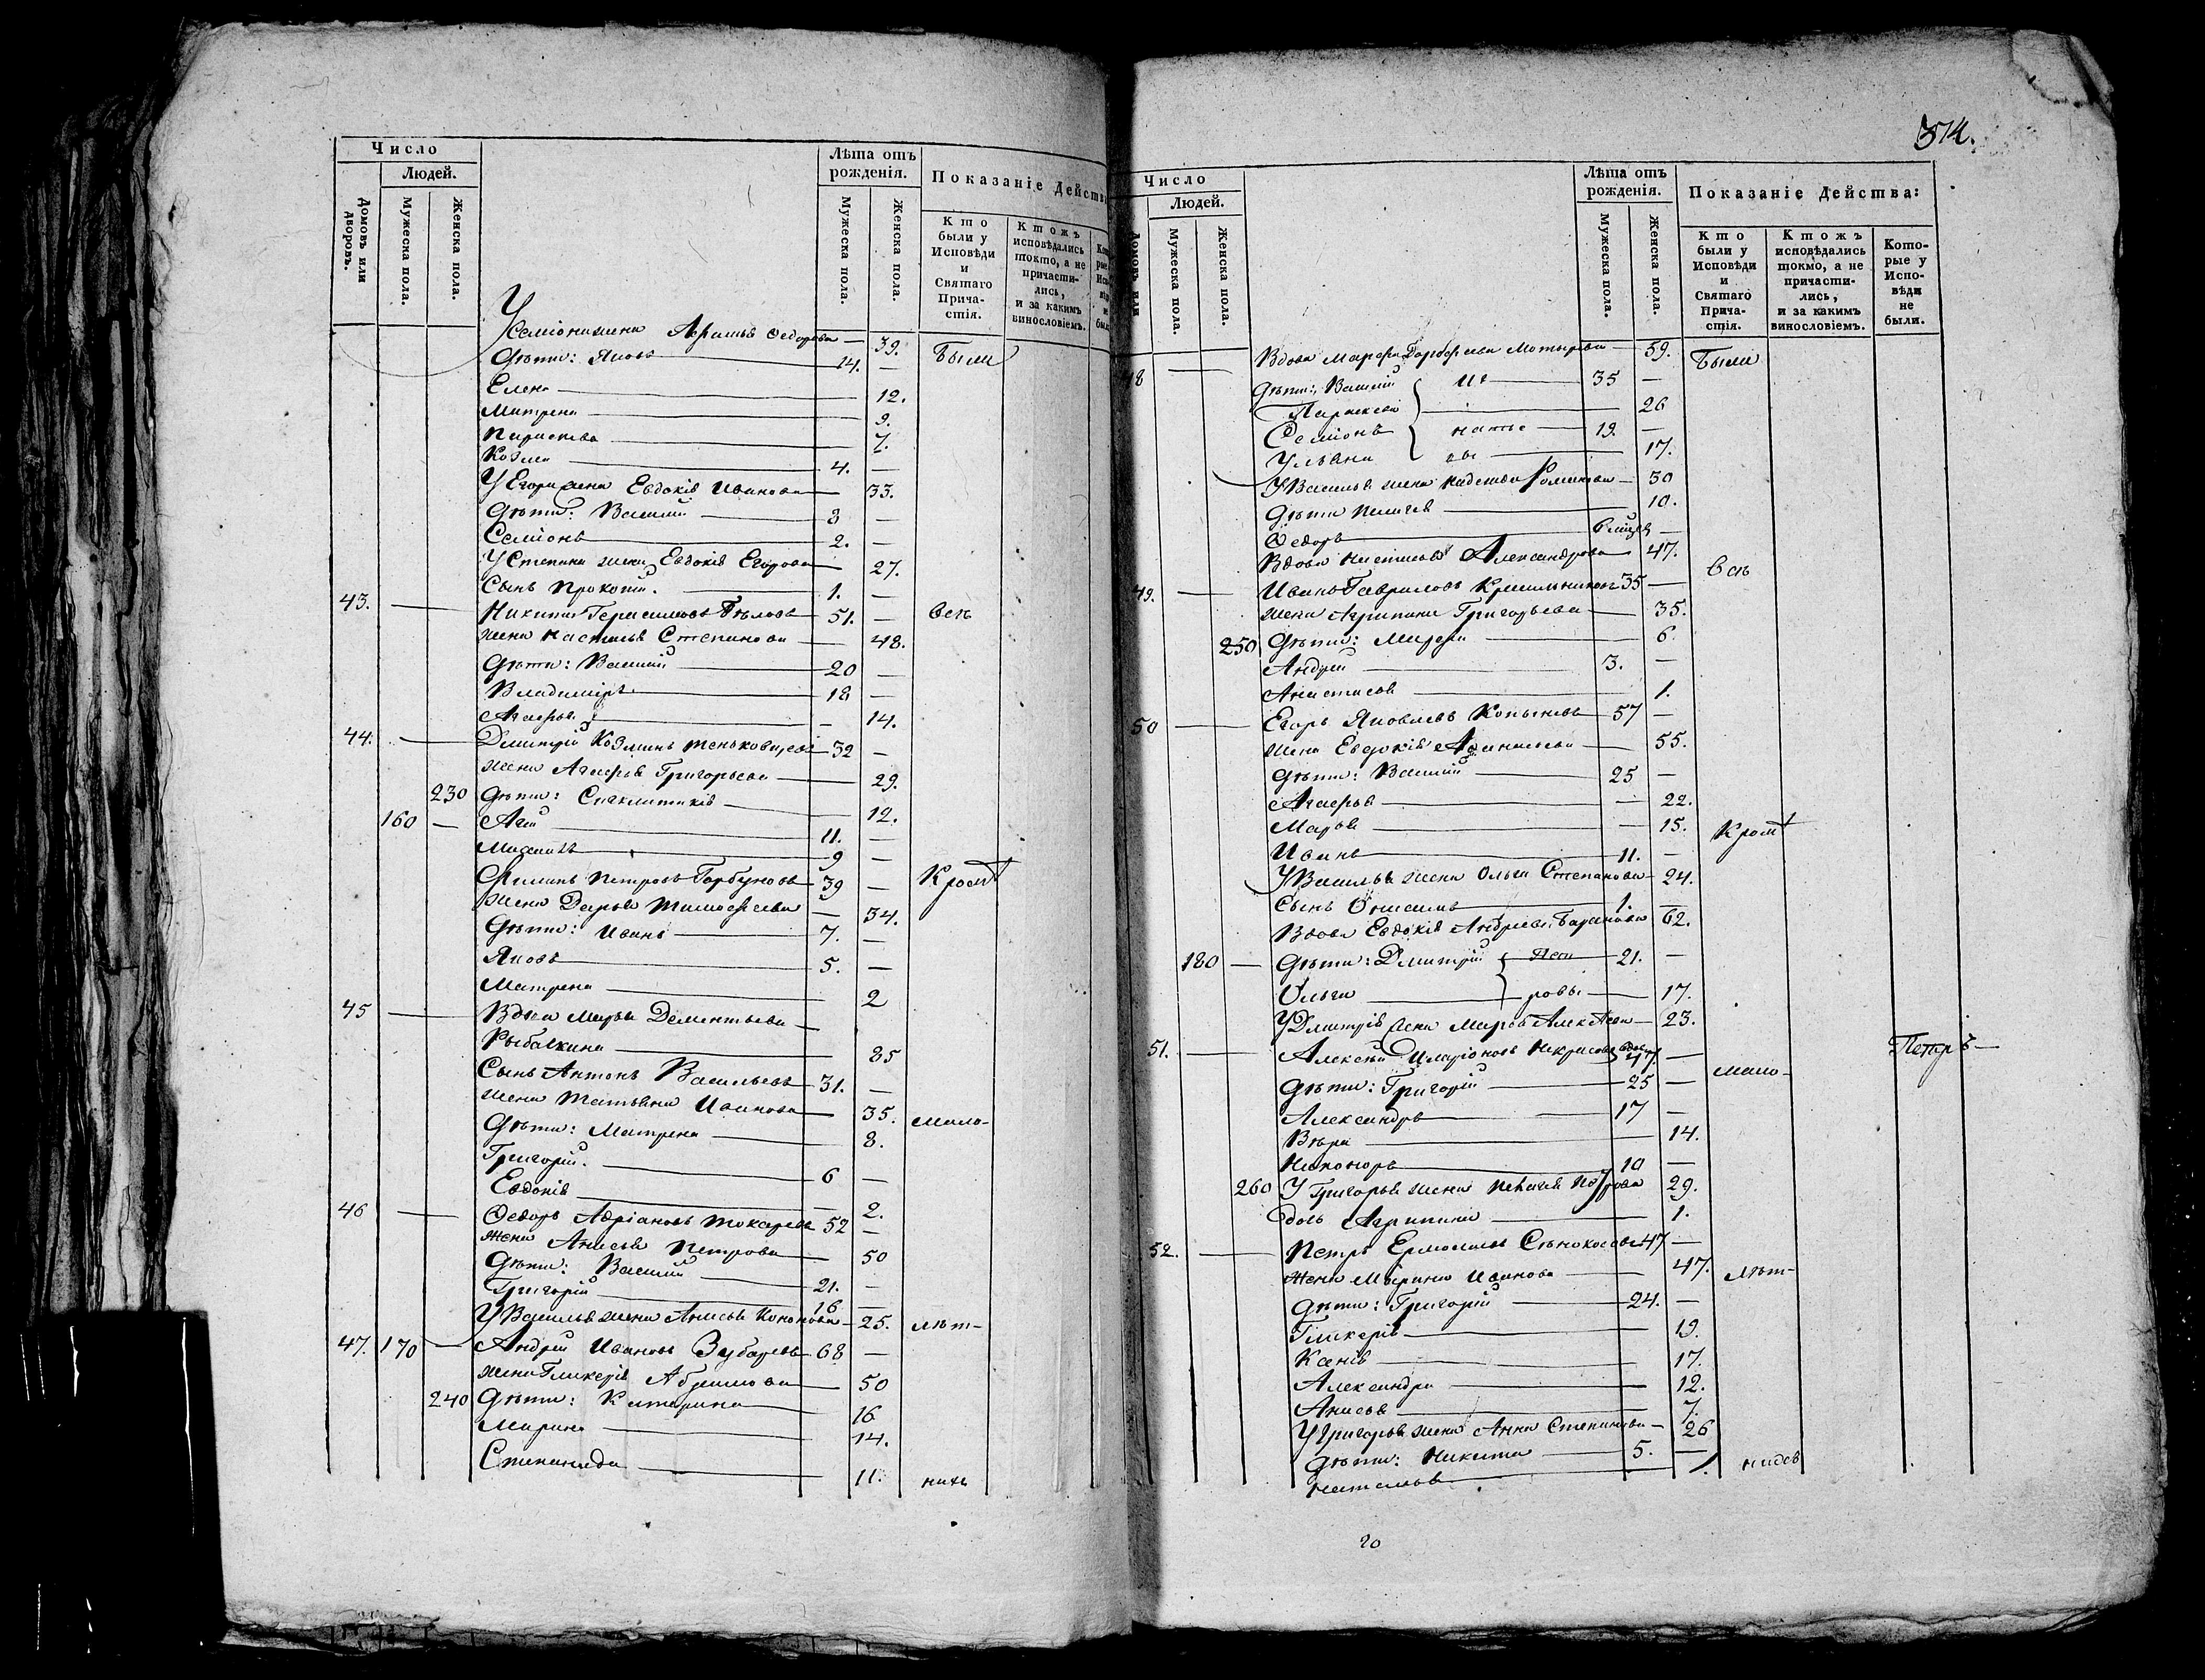 Число
Людей.
Домовъ или дворовъ.
Мужеска пола.
Женска пола.
Лѣта отъ рожденія.
Мужеска пола.
Женска пола.
Показаніе Действ
Кто были у Исповѣди и Святаго Причастія.
Ктожъ исповѣдались токмо, а не причастились, и за какимъ винословіемъ.
У Семіона жена Федорова — 39. Были
Дѣти: Яковъ — 14. —
Елена — 12.
Матрена — 9.
Параскева — 7.
Козма — 4. —
У Егора жена Евдокія Иванова — 33.
Дѣти: Василій — 8 —
Семіонъ — 2. —
У Степана жена Евдокія Егорова — 27.
Сынъ Прокопій. — 1. —
43. — Никита Герасимовъ Бѣловъ — 51. — всѣ
жена Настасья Степанова — 48.
Дѣти: Василій — 20 —
Владиміръ — 18 —
Агафья — 14.
44. — Дмитрій Козминъ — 32 —
жена Агафья Григорьева — 29.
230 Дѣти: — 12.
160 — — 11. —
Михаилъ — 9 —
Филипъ Петровъ Горбуновъ — 39 — Кромѣ
жена Дарья Тимофеева — 34.
Дѣти: Иванъ — 7. —
Яковъ — 5. —
Матрена — 2
45 — Вдова Марья Дементьева —
Рыбалкина — 85
Сынъ Антонъ Васильевъ — 31. —
жена Татьяна Иванова — 35. мало-
Дѣти: Матрена — 8.
Григорій. — 6 —
Евдокія — 2.
46 — Федоръ Адріановъ Токаревъ 52 —
жена Анисья Петрова — 50
Дѣти: Василій — 21. —
Григорій — 16 —
У Василья жена Анисья Кононова — 25. лѣт-
47. 170 — Андрей Ивановъ Зубаревъ — 68 —
жена Гликерія Абрамова — 50
240 Дѣти: Катерина — 16
Марина — 14.
Степанида — 11. нихъ
374.
Число
Людей.
Домовъ или
Мужеска пола.
Женска пола.
Лѣта отъ рожденія.
Мужеска пола.
Женска пола.
Показаніе Действа:
Кто были у Исповѣди и Святаго Причастія.
Ктожъ исповѣдались токмо, а не причастились, и за какимъ винословіемъ.
Которые у Исповѣди не были.
48 — Вдова Марфа — 59. Были
Дѣти: Василій — 35 —
Параскева — 26
Семіонъ — 19. —
Ульяна — 17.
У Василья жена Романова — 30
Дѣти Пелагея — 10.
Федоръ 6 —
Вдова Настасья Александрова — 47. всѣ
49. — Иванъ Гавриловъ 35 —
жена Агрипина Григорьева — 35.
250 Дѣти: Марфа — 6.
Андрей — 3. —
Анастасья — 1.
50 — Егоръ Яковлевъ Копыневъ — 57 —
жена Евдокія Афанасьева — 55.
Дѣти: Василій — 25 —
Агафья — — 22.
Марья — — 15. Кромѣ
Иванъ — 11. —
У Василья жена Ольга Степанова — 24.
Сынъ Онисимъ — 1. —
Вдова Евдокія Андреева Баранова 62.
180 — Дѣти: Дмитрій Пет — 21. —
Ольга — ровы — 17.
У Дмитрія жена Марья Алек — 23.
51. — Алексей Иларіоновъ Некрасовъ вдовъ 47. — Петръ —
Дѣти: Григорій — 25 — мало-
Александръ — 17 —
Вѣра — 14.
Никоноръ — 10 —
260 У Григорья жена Пелагея — 29.
дочь Агрипина — 1.
52. — Петръ Ермолаевъ Сѣнокосовъ 47 —
жена Марина Иванова — 47. лѣт-
Дѣти: Григорій — 24. —
Гликерія — 19.
Ксенія — 17.
Александра — 12.
Анисья — 7.
У Григорья жена Анна Степанова — 26
Дѣти: Никита — 5. —
Наталья — 1.
20